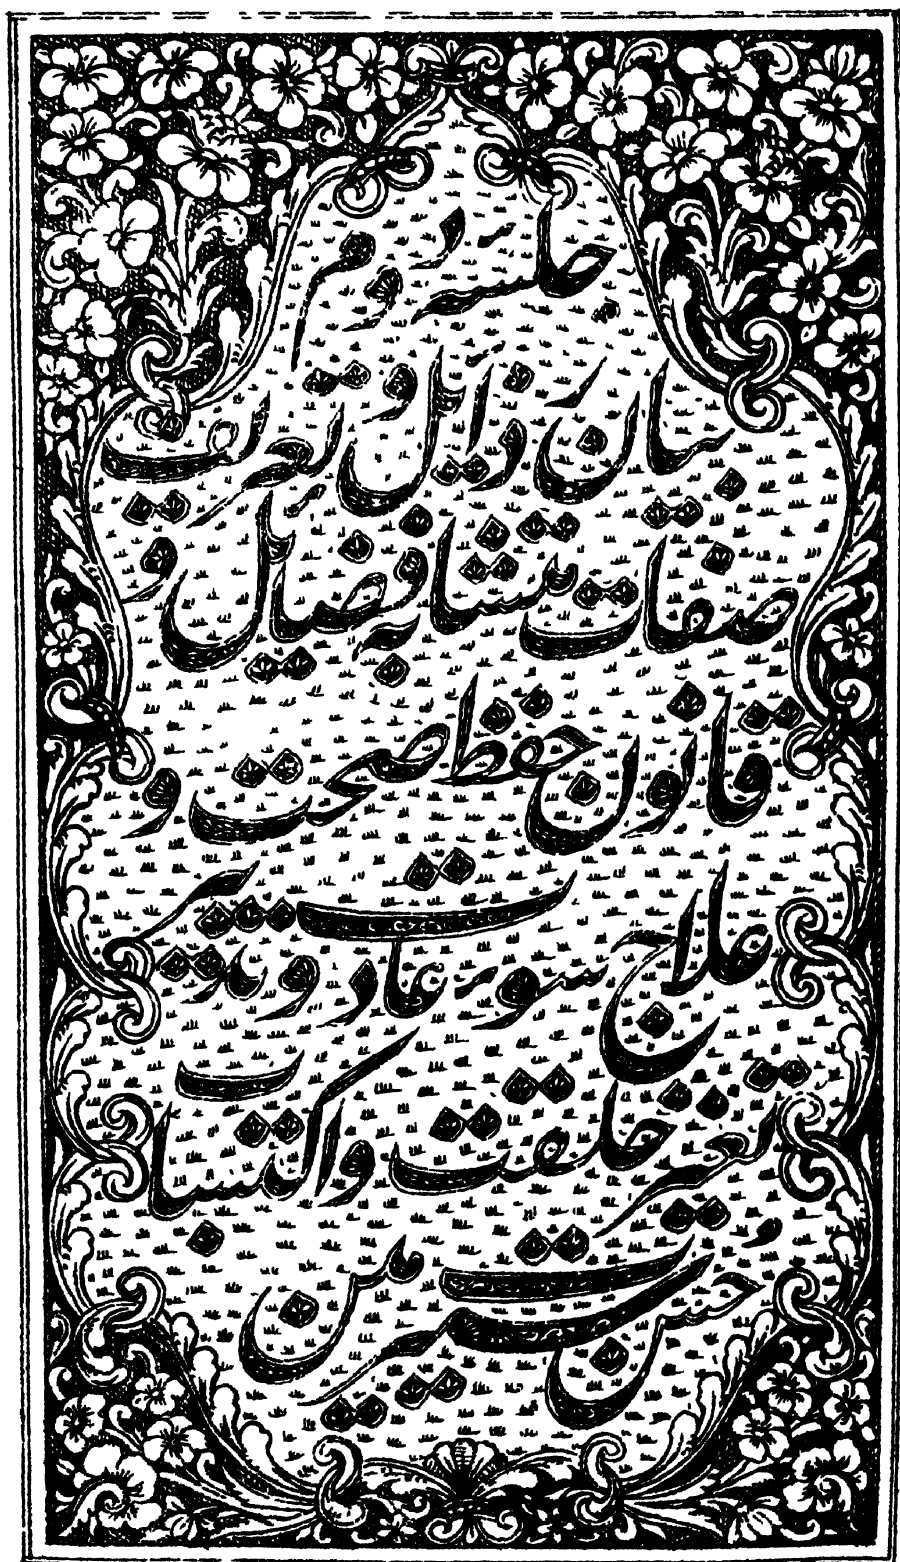 جلسه دوم
بیان رذائل و تعریف
صفات متشابه فضایل و
قانون حفظ صحت و
علاج سوء عادت و
تغییر خلقت و اکتساب
حسن سیرت